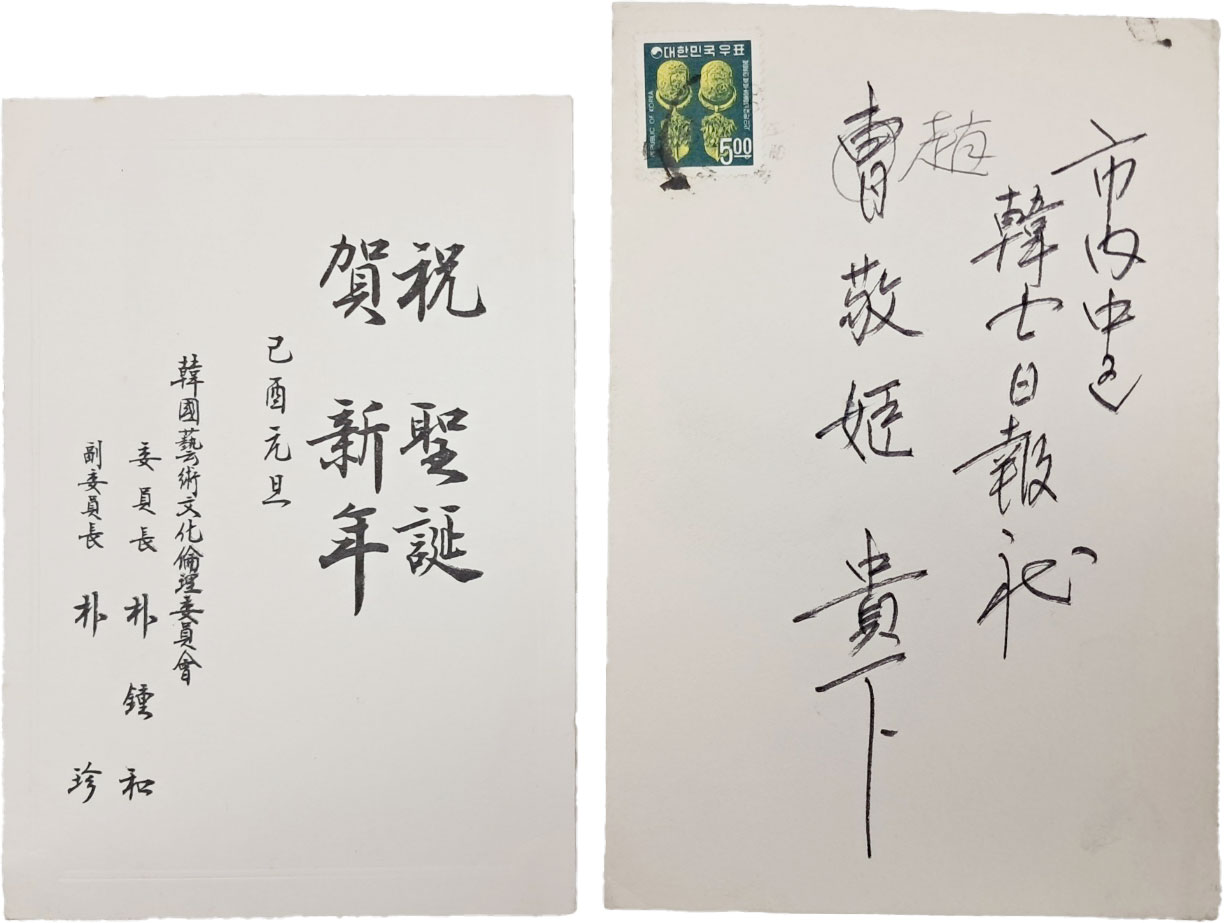 祝 聖誕
賀 新年
己酉元旦
韓國藝術文化倫理委員會
委員長 朴鍾和
副委員長 朴珍
대한민국우표
REPUBLIC OF KOREA
5.00
市内中区
韓国日報社
趙
曹敬姬 貴下